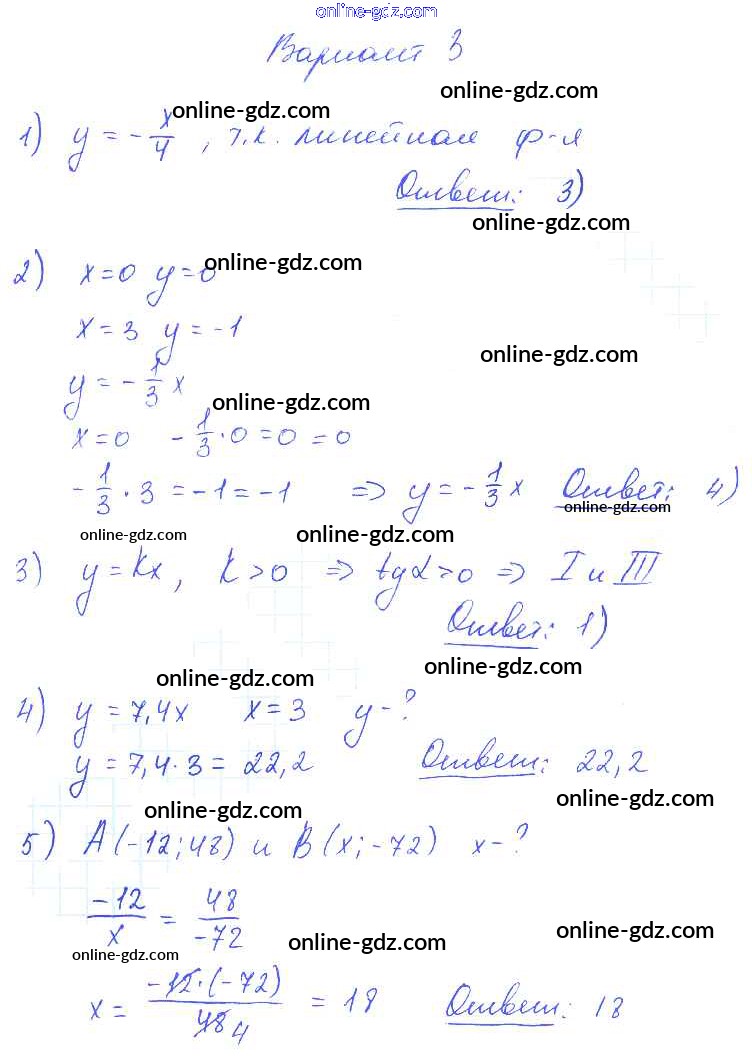 online-gdz.com
Вариант 3
online-gdz.com
online-gdz.com
1) y = -x/4, т.к. линейная ф-я
Ответ: 3)
online-gdz.com
2) x=0 y=0
online-gdz.com
x=3 y=-1
online-gdz.com
y = -1/3 x
online-gdz.com
x=0 -1/3·0=0=0
-1/3·3=-1=-1 => y=-1/3 x Ответ: 4)
online-gdz.com
online-gdz.com
online-gdz.com
3) y=kx, k>0 => tgα>0 => I и III
Ответ: 1)
online-gdz.com
online-gdz.com
4) y=7,4x x=3 y-?
y=7,4·3=22,2 Ответ: 22,2
online-gdz.com
online-gdz.com
5) A(-12;48) и B(x;-72) x-?
-12/x = 48/-72
online-gdz.com
online-gdz.com
online-gdz.com
x = -12·(-72)/48 4 = 18 Ответ: 18